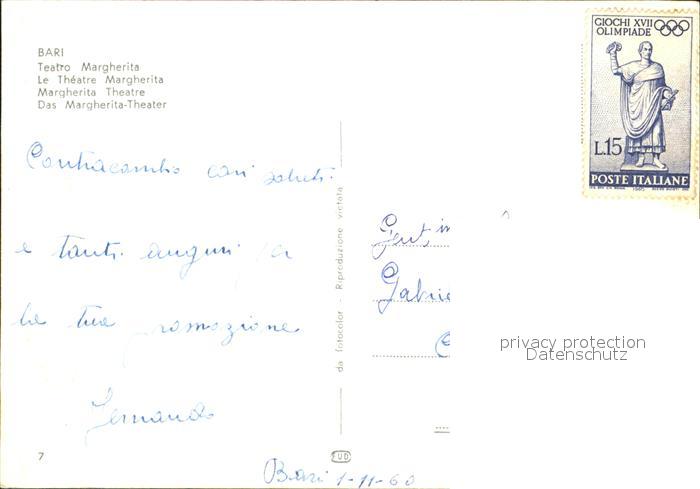 BARI
Teatro Margherita
Le Théatre Margherita
Margherita Theatre
Das Margherita-Theater
Contracambio cari saluti
e tanti auguri per
la tua promozione
Fernando
7
FUD
Bari 1-11-60
da fotocolor - Riproduzione vietata
GIOCHI XVII
OLIMPIADE
L.15
POSTE ITALIANE
1960
Gent.
Gabrie
privacy protection
Datenschutz